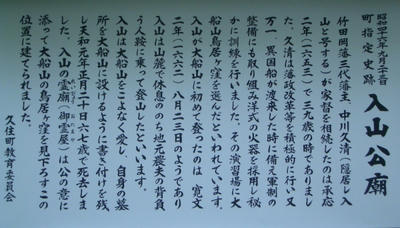 昭和四十六年九月二十日
町指定史跡 入山公廟
竹田岡藩三代藩主、中川久清(隠居し入
山と号する)が家督を相続したのは承応
二年(一六五三)で三九歳の時でありまし
た。久清は藩政改革等を積極的に行い又
万一、異国船が渡来した時に備え軍制の
整備にも取り組み洋式の火器を採用し秘
かに訓練を行いました。その演習場に大
船山鳥居ヶ窪を選んだといわれています。
入山が大船山に初めて登ったのは、寛文
二年(一六六二)八月二三日のようであり
入山は山麓で休息ののち地元農夫の背負
う人鞍に乗って登山したといいます。
入山は大船山をこよなく愛し、自身の墓
所を大船山に設けるように書き付けを残
し天和元年正月二十日六七歳で死去しま
した。入山の霊廟(御霊屋)は公の意に
れいびょう おたまや
添って大船山の鳥居ヶ窪を見下ろすこの
位置に建てられました。
久住町教育委員会